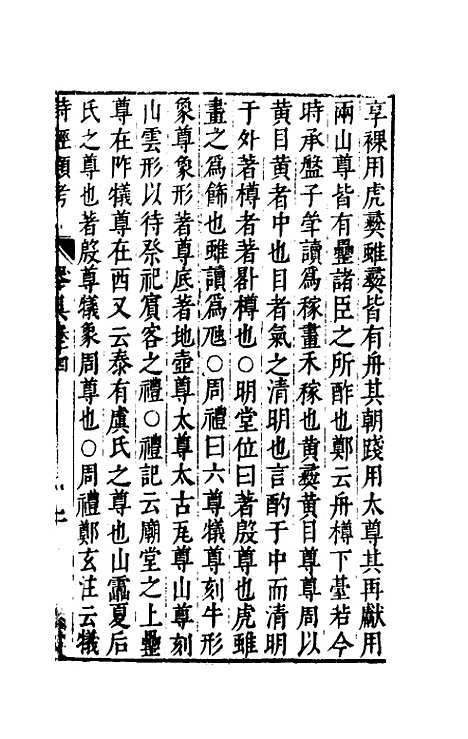 享祼用虎彜蜼彜皆有舟其朝踐用太尊其再獻用
兩山尊皆有罍諸臣之所酢也鄭云舟樽下臺若今
時承盤子斝讀爲稼畫禾稼也黄彜黄目尊尊周以
黄目黄者中也目者氣之清明也言酌于中而清明
于外著樽者著畧樽也○明堂位曰著殷尊也虎蜼
畫之爲飾也蜼讀爲虺○周禮曰六尊犧尊刻牛形
象尊象形著尊底著地壺尊太尊太古瓦尊山尊刻
山雲形以待祭祀賓客之禮○禮記云廟堂之上罍
尊在阼犧尊在西又云泰有虞氏之尊也山罍夏后
氏之尊也著殷尊犧象周尊也○周禮鄭玄注云犧
詩經類考 卷